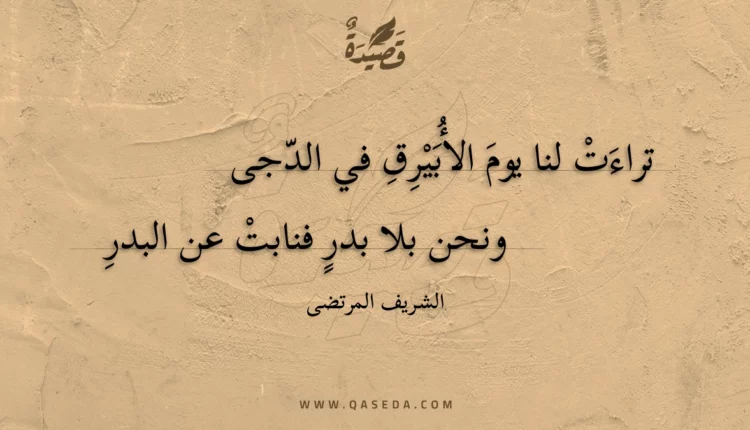 قَصِيدَةٌ
تراءَتْ لنا يومَ الأُبَيْرِقِ في الدّجى
ونحن بلا بدرٍ فنابتْ عن البدرِ
الشريف المرتضى
WWW.QASEDA.COM